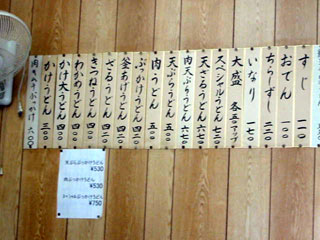 すじ 一一〇
おでん 一〇〇
ちらしずし 二二〇
いなり 一七〇
大盛 各五〇アップ
スペシャルうどん 六七〇
天ざるうどん 六二〇
肉天ぷらうどん 六七〇
天ぷらうどん 五二〇
肉うどん 五二〇
ぶっかけうどん 四二〇
釜あげうどん 四二〇
ざるうどん 四二〇
きつねうどん 四二〇
わかめうどん 四〇〇
かけ大うどん 四〇〇
かけうどん 三〇〇
肉きみやぶっかけ 六〇〇
天ぷらぶっかけうどん
¥530
肉ぶっかけうどん
¥530
スペシャルぶっかけうどん
¥750